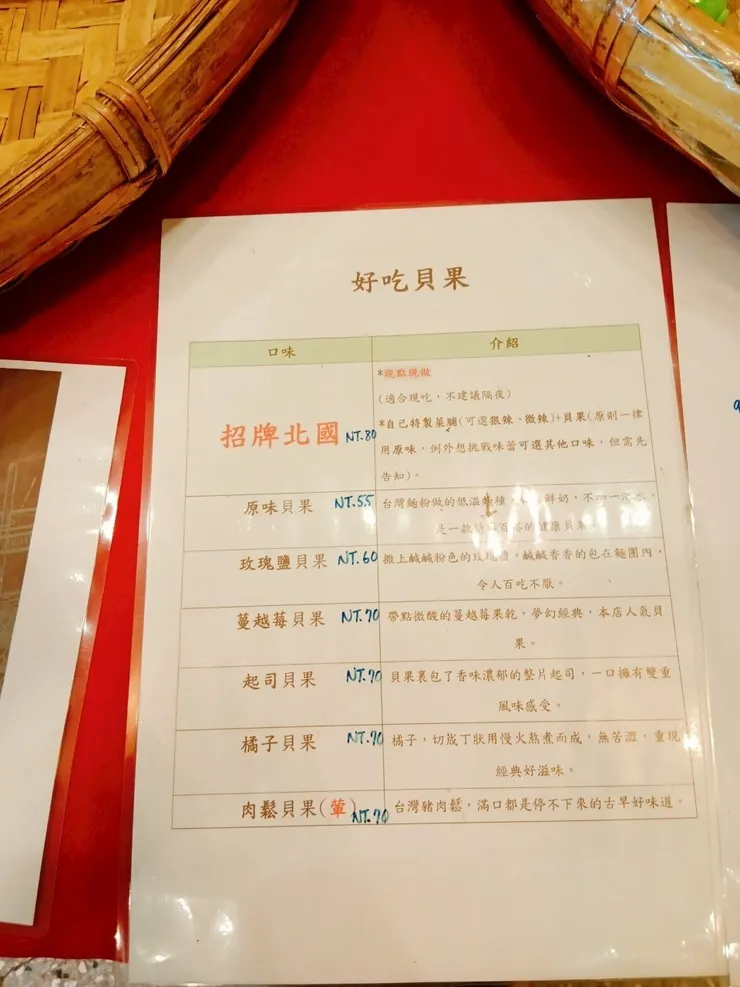 好吃貝果
口味 介紹
招牌北國 NT.80
*現點現做
(適合現吃，不建議隔夜)
*自己特製菜脯(可選狠辣、微辣)+貝果(原則一律
用原味，例外想挑戰味蕾可選其他口味，但需先
告知)。
原味貝果 NT.55
台灣麵粉做的低溫 種， 鮮奶，不加一 水，
是一款 百搭的健康貝果
玫瑰鹽貝果 NT.60
撒上鹹鹹粉色的玫瑰 ，鹹鹹香香的包在麵團內，
令人百吃不厭。
蔓越莓貝果 NT.70
帶點微酸的蔓越莓果乾，夢幻經典，本店人氣貝
果。
起司貝果 NT.70
貝果裹包了香味濃郁的整片起司，一口擁有雙重
風味感受。
橘子貝果 NT.70
橘子，切成丁狀用慢火熬煮而成，無苦澀，重現
經典好滋味。
肉鬆貝果(葷) NT.70
台灣豬肉鬆，滿口都是停不下來的古早好味道。